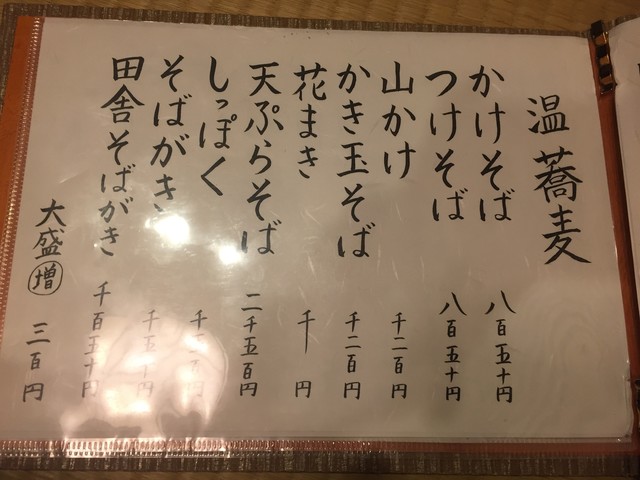 温蕎麦
かけそば 八百五十円
つけそば 八百五十円
山かけ 千二百円
かき玉そば 千二百円
花まき 千円
天ぷらそば 二千五百円
しっぽく
そばがき 千五十円
田舎そばがき 千百五十円
大盛増 三百円